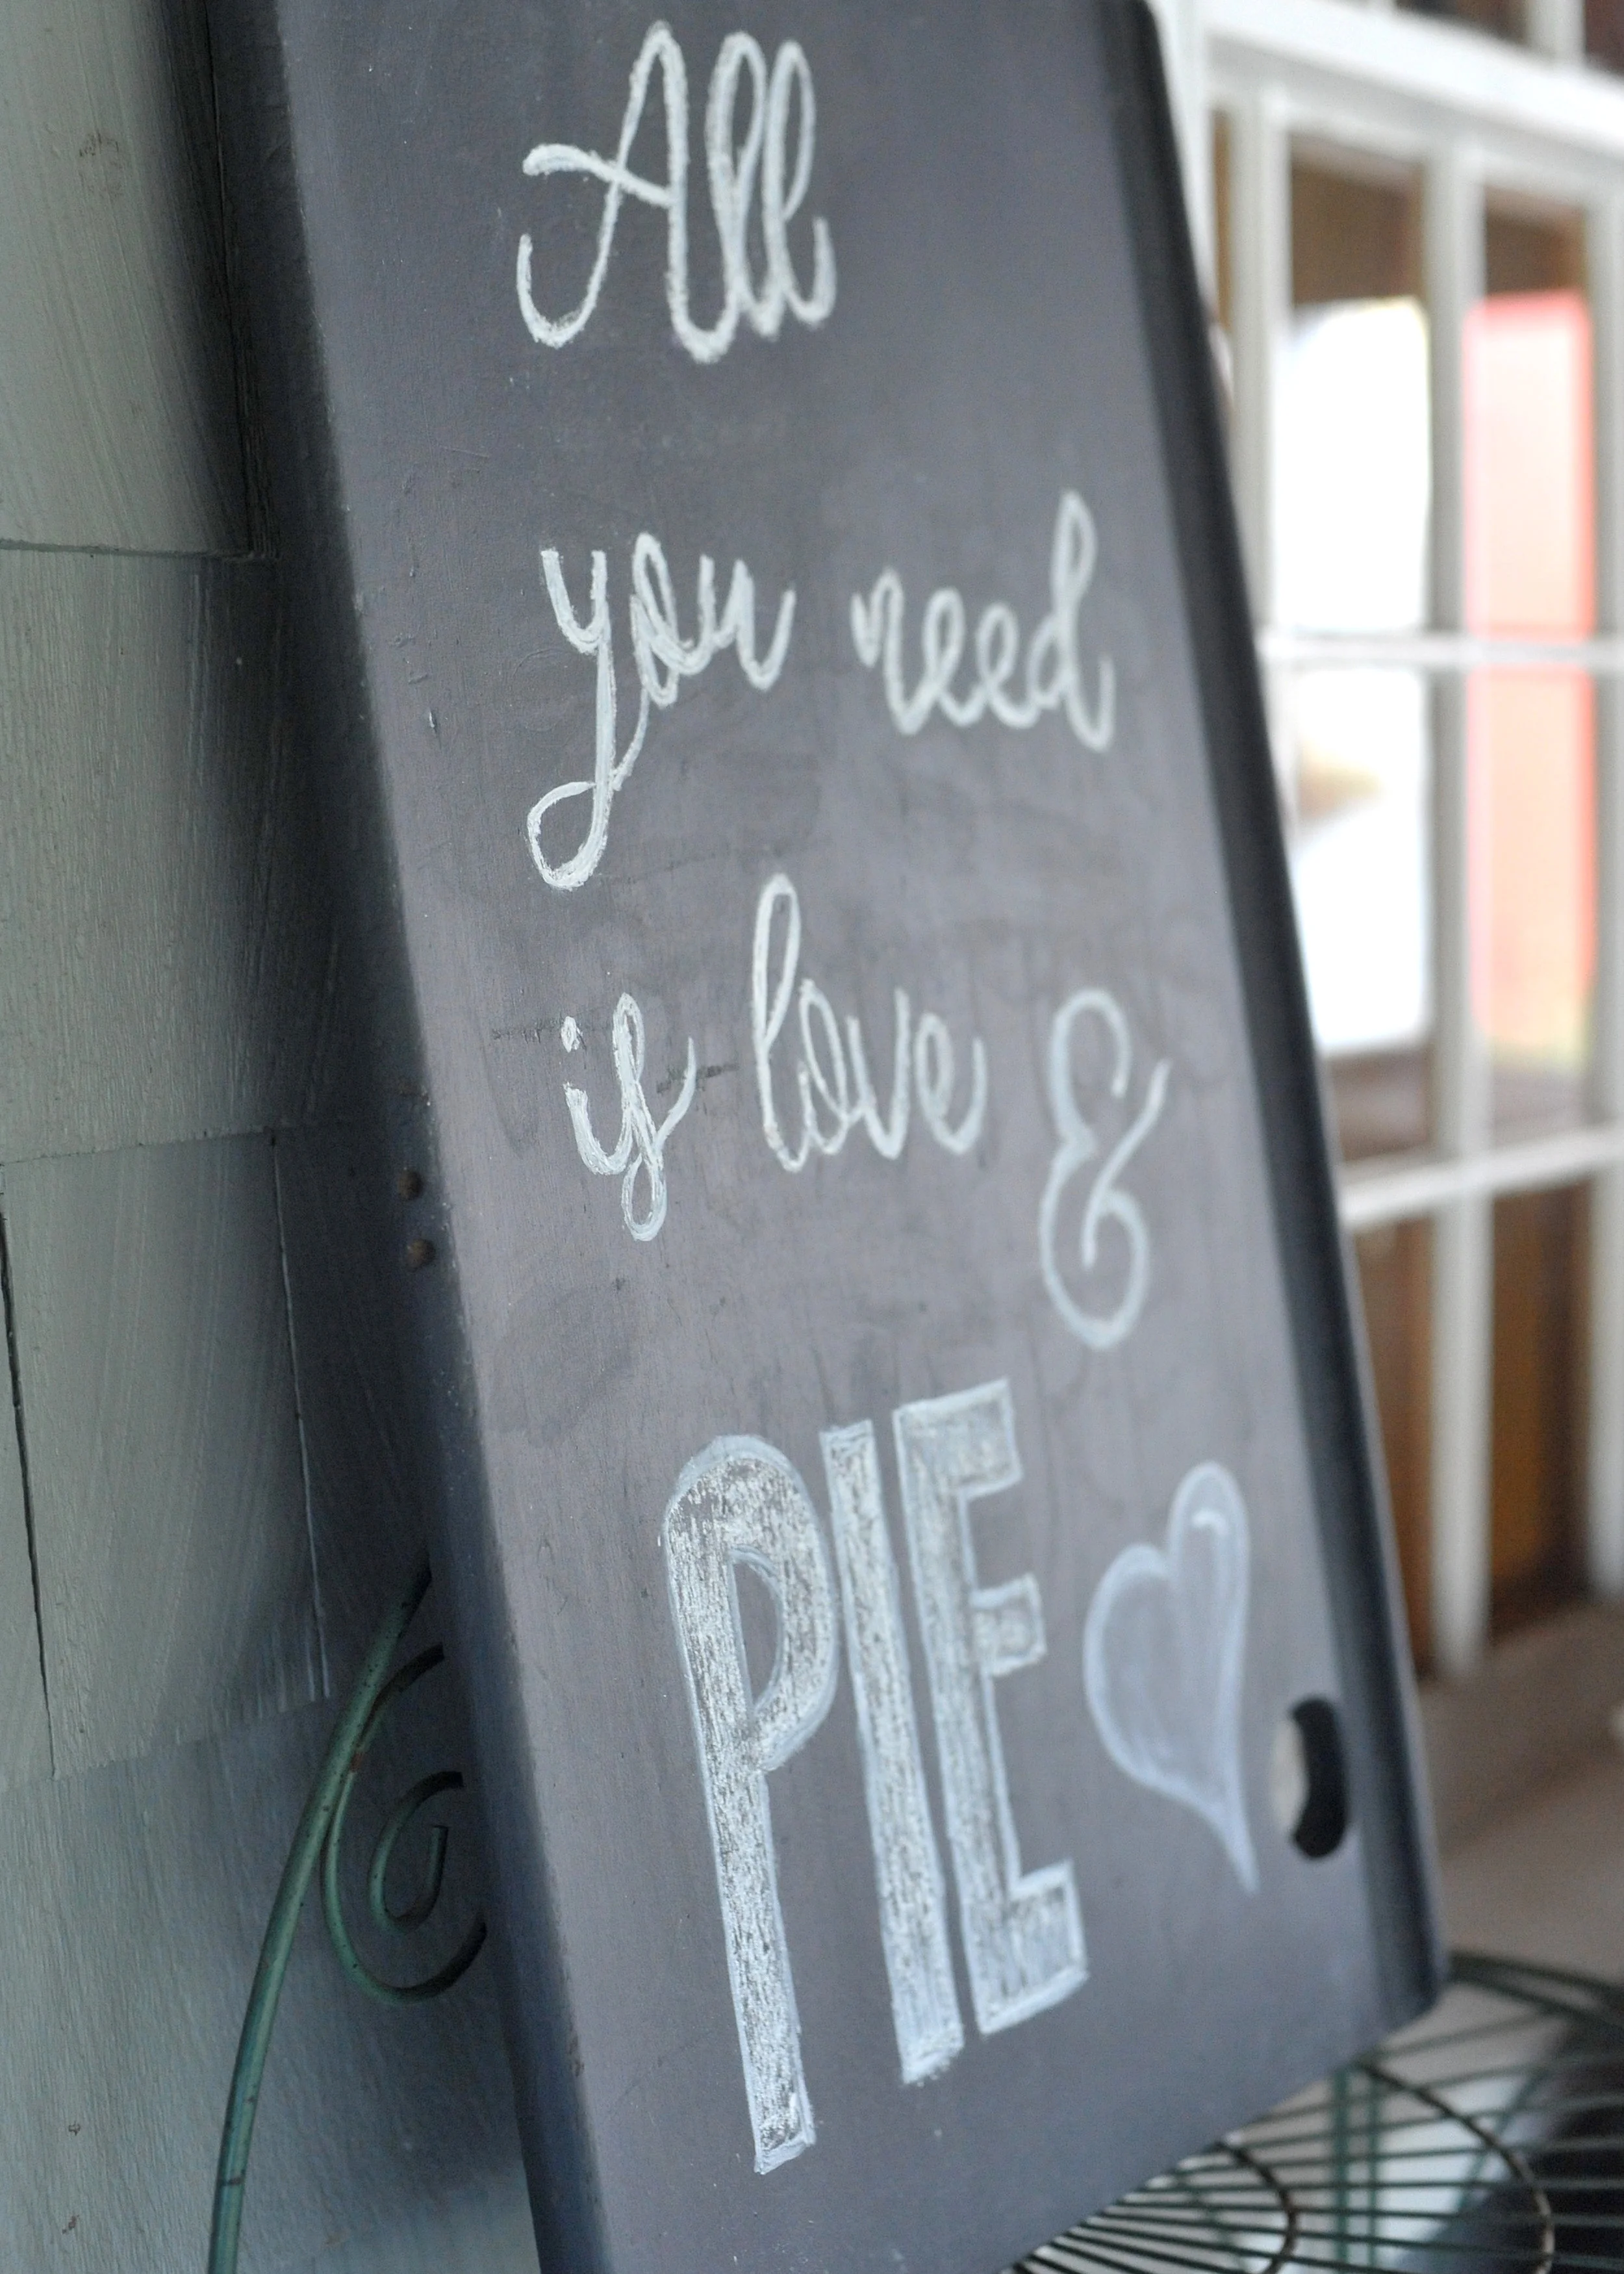 All
you need
is love &
PIE